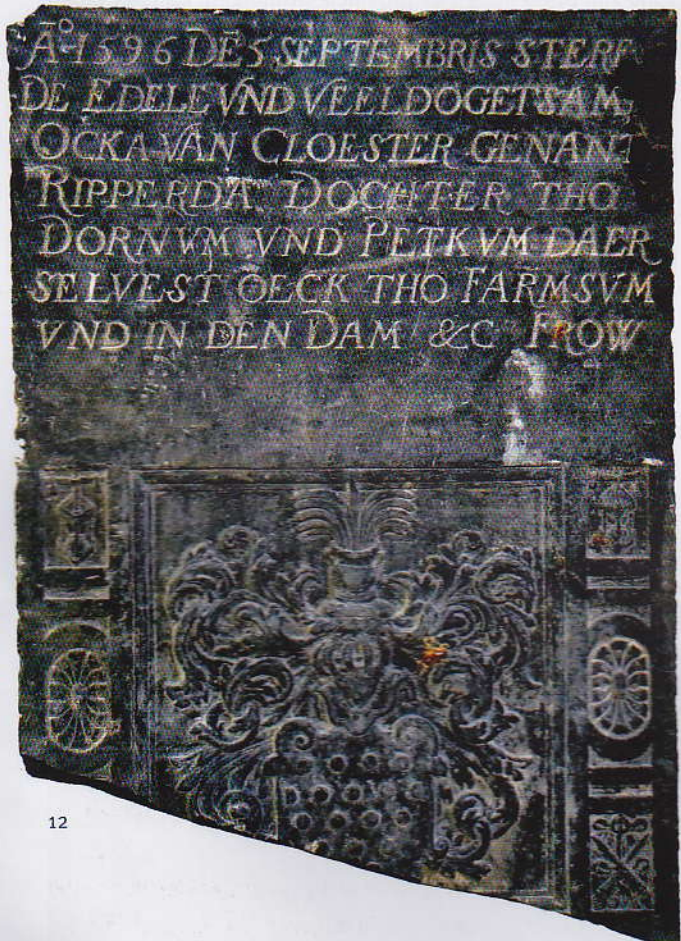 Āº 1596 DĒ 5 SEPTEMBRIS STERF
DE EDELE VND VEELDOGETSAM
OCKA VAN CLOESTER GENANT
RIPPERDA DOCHTER THO
DORNVM VND PETKVM DAER
SELVEST OECK THO FARMSVM
VND IN DEN DAM &C FROW
12